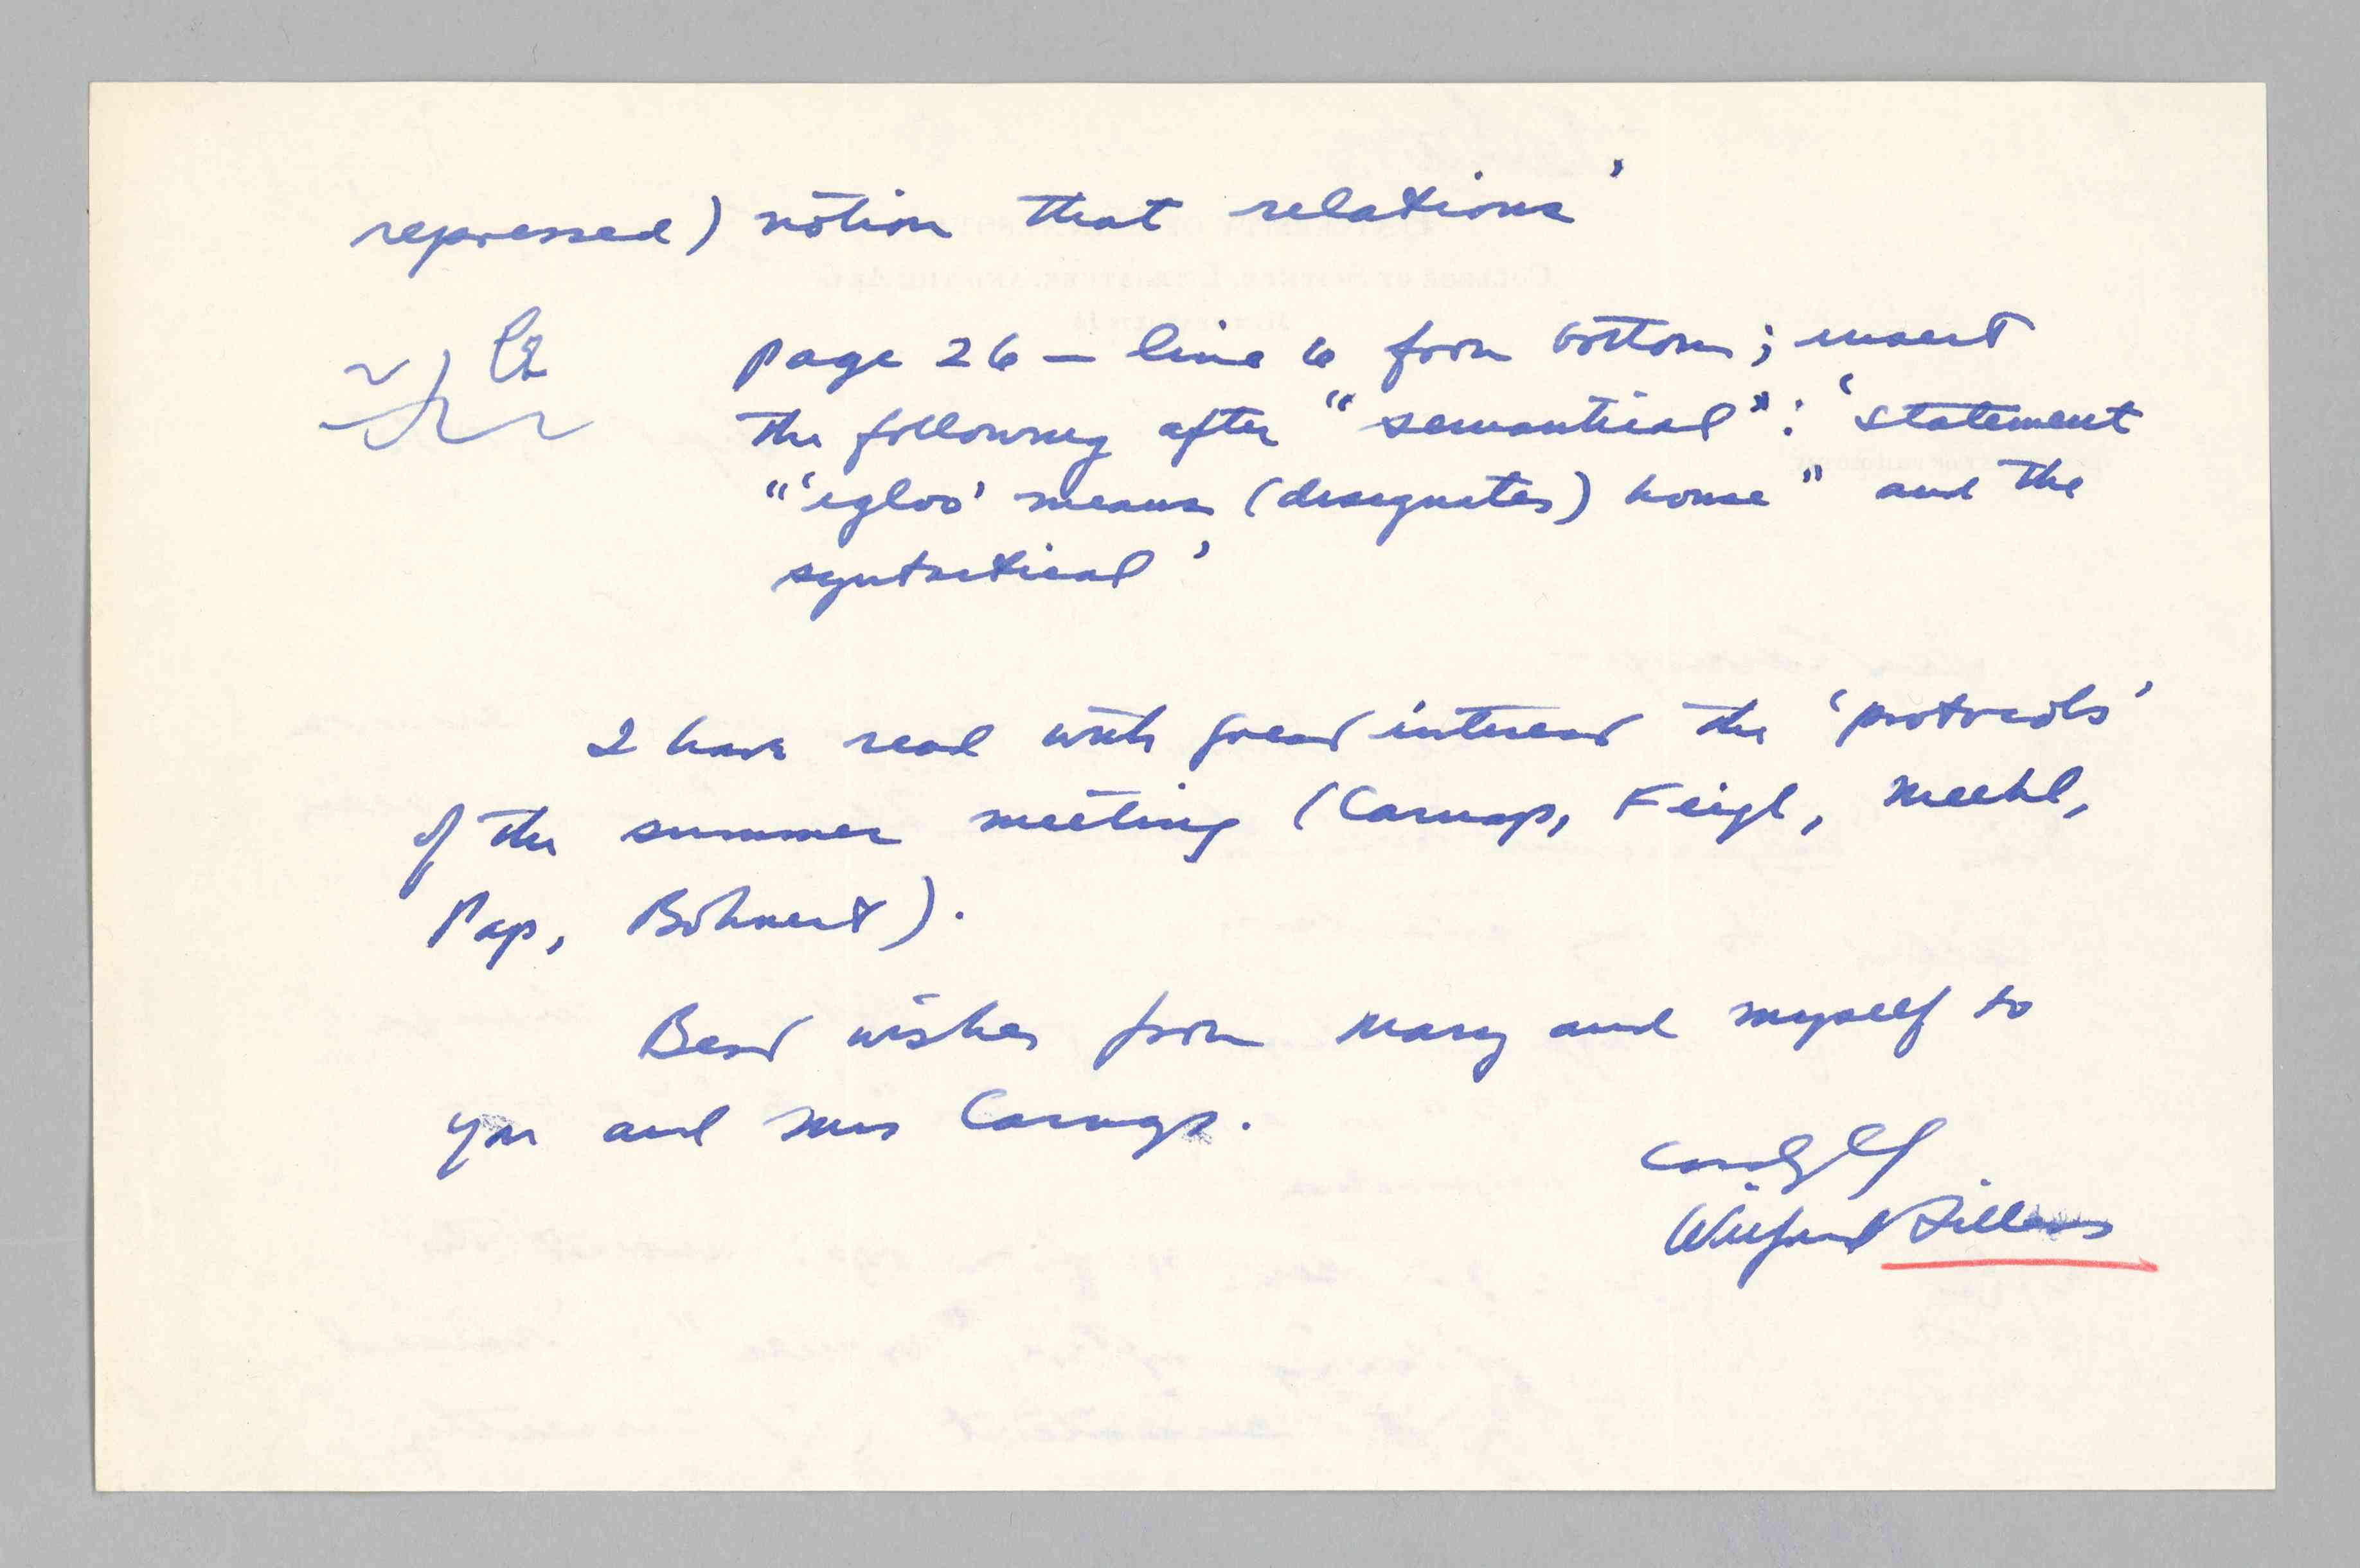 repressed) notion that relations'
page 26 — line 6 from bottom; insert
the following after "semantical": 'statement
"'igloo' means (designates) house" and the
syntactical'
I have read with great interest the 'protocols'
of the summer meeting (Carnap, Feigl, Meehl,
Pap, Bohnert).
Best wishes from Mary and myself to
you and Mrs Carnap.
Cordially
Wilfrid Sellars